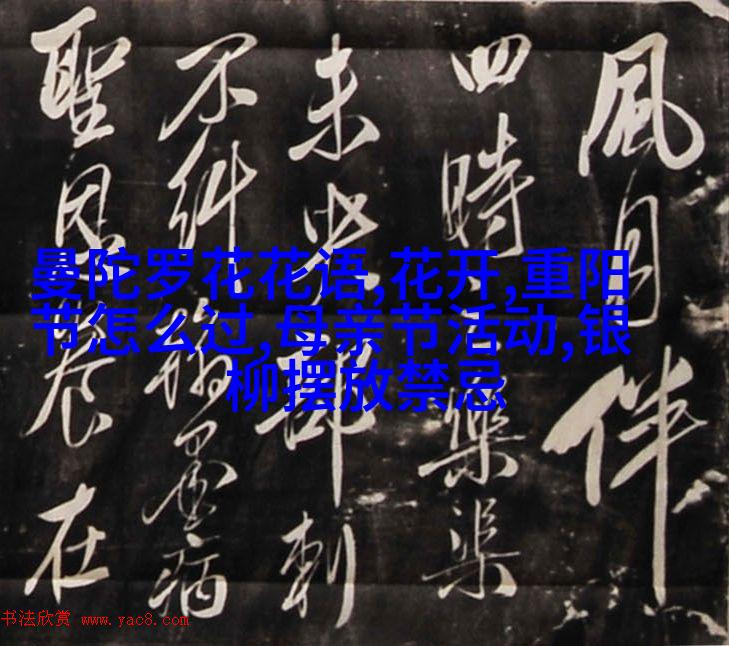 風月伴
四時樂渠
未郡刺
不糾病
聖恩養在
曼陀罗花花语,花开,重阳
节怎么过,母亲节活动,银
柳摆放禁忌
书法欣赏 www.yac8.com